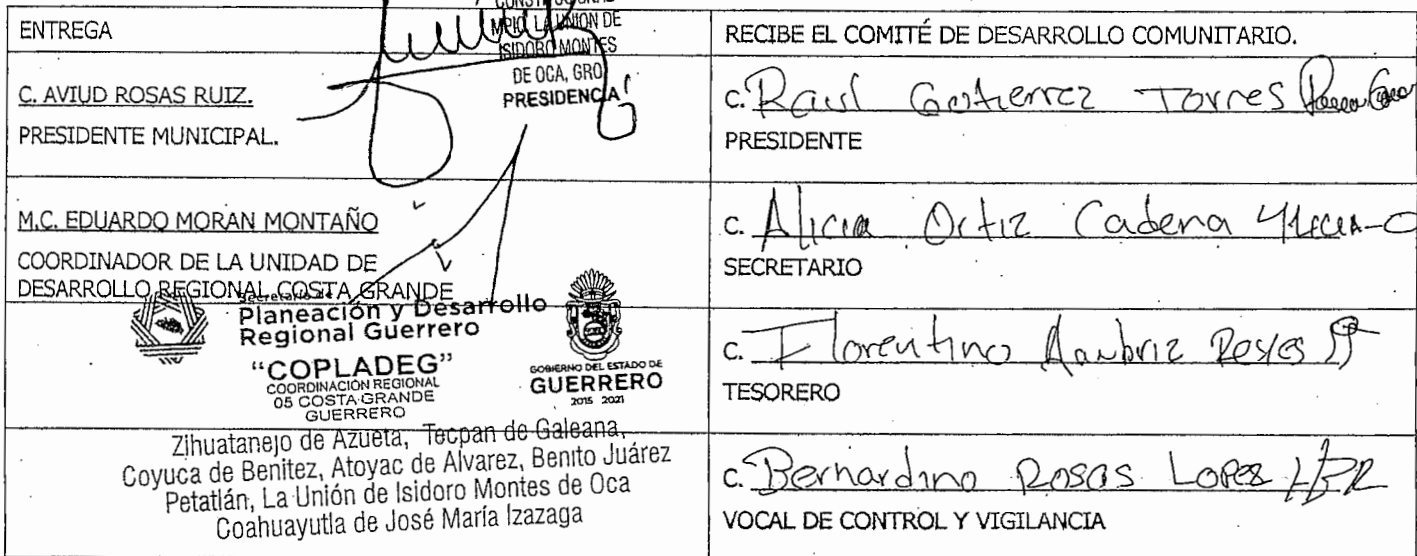 ENTREGA
CONSTITUCIONAL
MPIO. LA UNION DE
ISIDORO MONTES
DE OCA, GRO
PRESIDENCIA
C. AVIUD ROSAS RUIZ.
PRESIDENTE MUNICIPAL.
M.C. EDUARDO MORAN MONTAÑO
COORDINADOR DE LA UNIDAD DE
DESARROLLO REGIONAL COSTA GRANDE
Secretaría de
Planeación y Desarrollo
Regional Guerrero
"COPLADEG"
COORDINACIÓN REGIONAL
05 COSTA GRANDE
GUERRERO
GOBIERNO DEL ESTADO DE
GUERRERO
2015 2021
Zihuatanejo de Azueta, Tecpan de Galeana,
Coyuca de Benitez, Atoyac de Alvarez, Benito Juárez
Petatlán, La Unión de Isidoro Montes de Oca
Coahuayutla de José María Izazaga
RECIBE EL COMITÉ DE DESARROLLO COMUNITARIO.
C. Raul Gutierrez Torres
PRESIDENTE
C. Alicia Ortiz Cadena
SECRETARIO
C. Florentino Reyes
TESORERO
C. Bernardino Rosas Lopez
VOCAL DE CONTROL Y VIGILANCIA